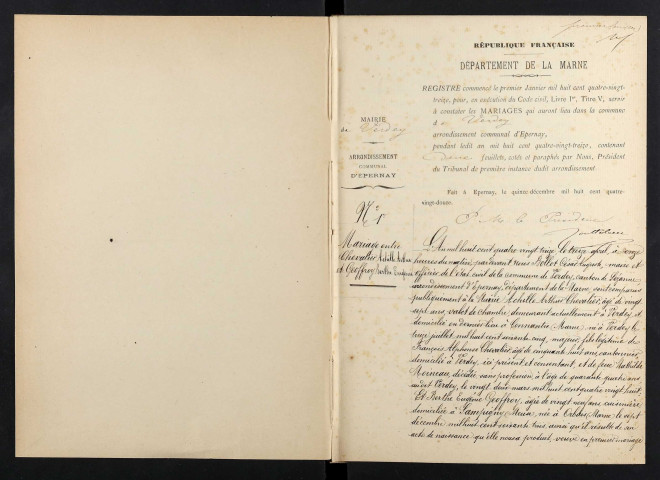 RÉPUBLIQUE FRANÇAISE
DÉPARTEMENT DE LA MARNE
REGISTRE commencé le premier Janvier mil huit cent quatre-vingt-
treize, pour, en exécution du Code civil, Livre Ier, Titre V, servir
à constater les MARIAGES qui auront lieu dans la commune
d e Verdey
arrondissement communal d'Epernay,
pendant ledit an mil huit cent quatre-vingt-treize, contenant
Deux feuillets, cotés et paraphés par Nous, Président
du Tribunal de première instance dudit arrondissement.
Fait à Epernay, le quinze décembre mil huit cent quatre-
vingt-douze.
P. M. le Président
MAIRIE
de Verdey
ARRONDISSEMENT
COMMUNAL
D'ÉPERNAY
N° 1er
Mariage entre
Chevalier Achille Arthur
et Geoffroy Berthe Eugénie
L'an mil huit cent quatre vingt treize, le treize avril à onze
heures du matin, par devant nous Follot César Auguste, maire et
officier de l'état civil de la commune de Verdey, canton de Sézanne
arrondissement d'Epernay, Département de la Marne, ont comparu
publiquement à la Mairie Achille Arthur Chevalier, âgé de vingt
sept ans, valet de chambre, demeurant actuellement à Verdey, et
domicilié en dernier lieu à Connantre (Marne) né à Verdey le
treize juillet mil huit cent soixante cinq, majeur, fils légitime de
François Alphonse Chevalier, âgé de cinquante huit ans, cantonnier,
domicilié à Verdey, ici présent et consentant, et de feue Mathilde
Moineau, décédée, sans profession, à l'âge de quarante quatre ans
audit Verdey, le vingt deux mars mil huit cent quatre vingt huit,
Et Berthe Eugénie Geoffroy, âgée de vingt neuf ans, cuisinière
domiciliée à Sampigny, Meuse, née à Orbais, Marne, le sept
décembre mil huit cent soixante trois, ainsi qu'il résulte de son
acte de naissance qu'elle nous a produit, veuve en premier mariage